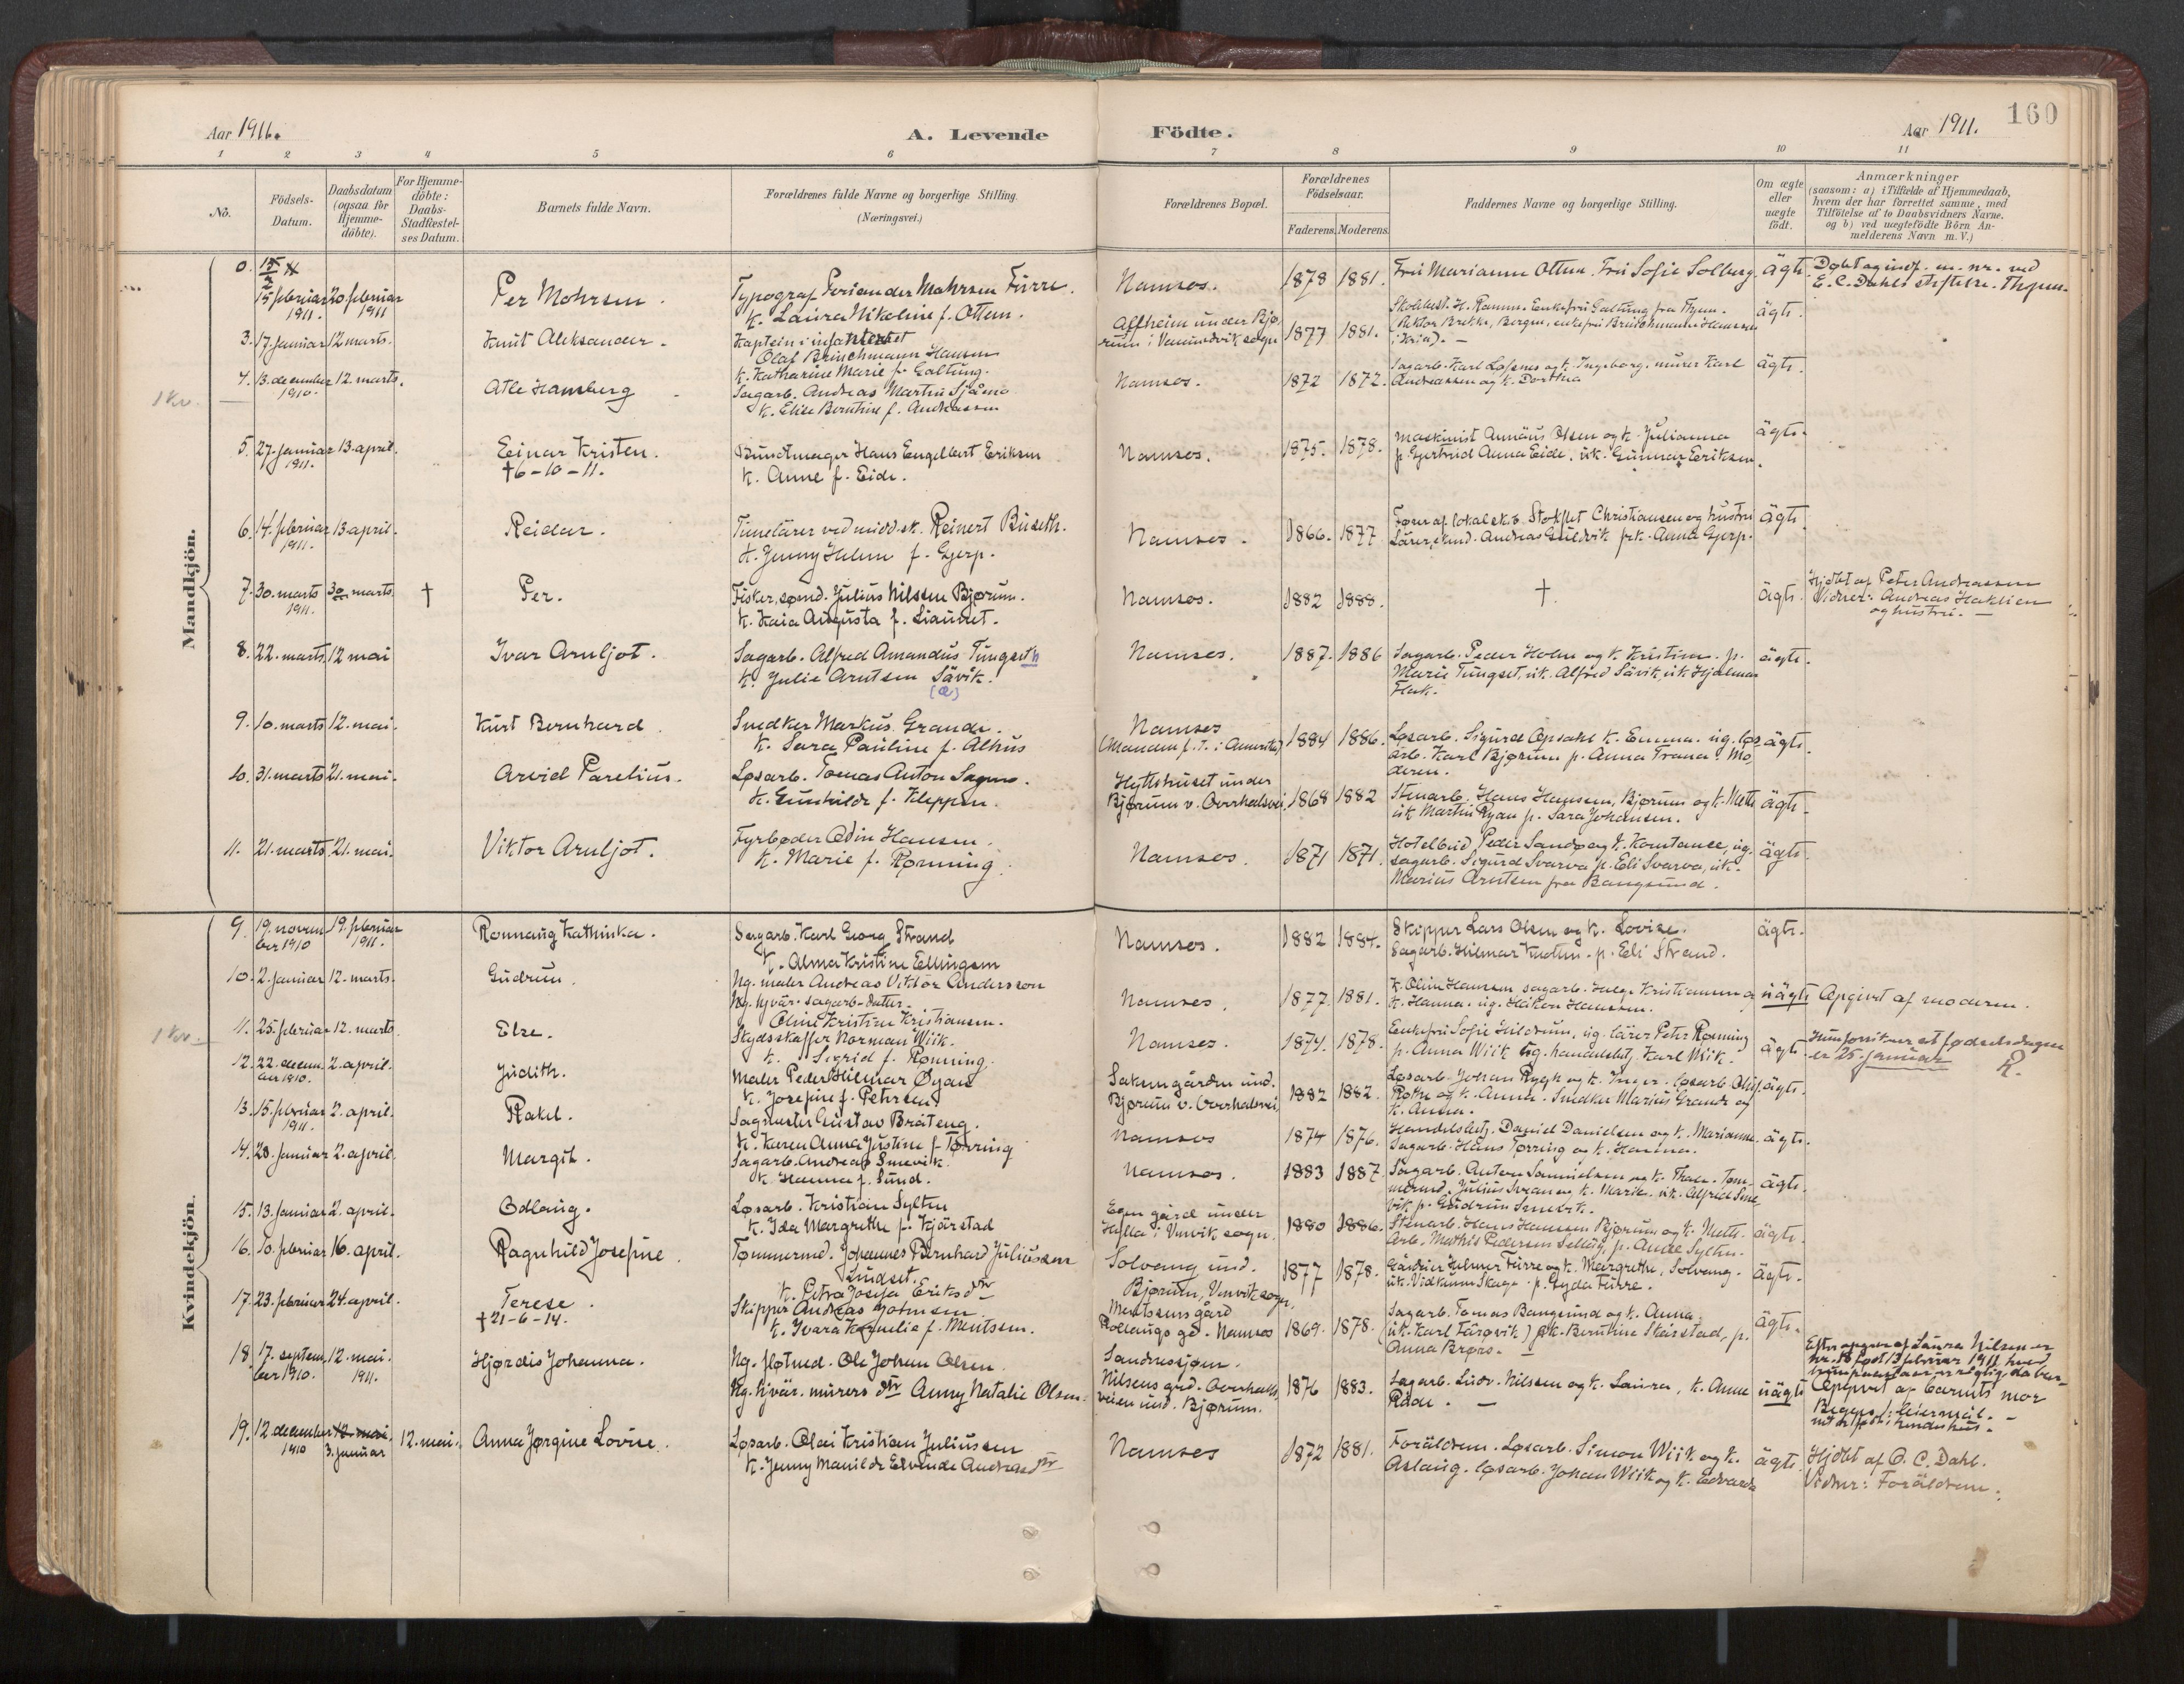 160
Aar 1911.
A. Levende
Födte.
Aar 1911.
1 2 3 4 5 6 7 8 9 10 11
No.
Födsels-Datum.
Daabsdatum (ogsaa for Hjemme-döbte).
For Hjemme-döbte: Daabs-Stadfæstel-ses Datum.
Barnets fulde Navn.
Forældrenes fulde Navne og borgerlige Stilling.
(Næringsvei.)
Forældrenes Bopæl.
Forældrenes Födselsaar.
Faderens. Moderens.
Faddernes Navne og borgerlige Stilling.
Om ægte eller uægte födt.
Anmærkninger
(saasom: a) i Tilfælde af Hjemmedaab,
hvem der har forrettet samme, med
Tilföielse af to Daabsvidners Navne.
og b) ved uægtefödte Börn An-
melderens Navn m. V.)
Mandkjön.
0. 15 februar 1911. 20 februar 1911 Per Mohrsen.
Typograf Feriander Mohrsen Fürre.
K. Laura Nikoline f. Ottem.
Namsos. 1878 1881. Fru Marianne Ottem. Fru Sofie Solberg. ägte.
Døbt og indf. u. nr. ved
E. C. Dahls stiftelse. Thjem.
3. 17. januar 12 marts. Knut Aleksander.
Kaptein i infanteriet
Olaf Brinchmann Hansen
K. Katharine Marie f. Galtung.
Alfheim under Bjø-
rum i Vemundvik sogn 1877 1881.
ägte.
1 kv.
4. 13. december 1910. 12. marts. Atle Hamberg
Sagarb. Andreas Martin Sjåmo
K. Elise Berntine f. Andreassen
Namsos. 1872 1872.
Sagarb. Karl Løfsnes og K. Ingeborg. murer Karl
Andreassen og K. Dorthea
ägte.
5. 27. januar 1911. 13. april. Einar Kristen.
†6-10-11.
Bundtmager Hans Engelbert Eriksen
K. Anne f. Eide.
Namsos. 1875. 1878.
Maskinist Annäus Olsen og K. Julianna
p. Gjertrud Anna Eide. uk. Gunnar Eriksen.
ägte.
6. 14. februar 1911. 13 april. Reidar.
Timelärer ved midd.sk. Reinert Buseth.
K. Jenny Helene f. Gjerp.
Namsos. 1866. 1877
Fører af lokalsk.b. Stokflet Christiansen og hustru
Lärer, kand. Andreas Guldvik frk. Anna Gjerp.
ägte.
7. 30. marts 1911. 30 marts. † Per.
Fisker, sømd. Julius Nilssen Bjørum.
K. Kaia Augusta f. Liaunet.
Namsos. 1882 1888. † ägte.
Hjdbt af Peter Andreassen
Vidner: Andreas Haklien
og hustru.
8. 22. marts 12 mai Ivar Arnljot.
Sagarb. Alfred Amandus Tungset
K. Julie Arntsen Sävik.
(æ)
Namsos. 1887. 1886
Sagarb. Peder Holm og K. Kristine. p.
Marie Tungset. uk. Alfred Sävik, uk. Hjalmar
Flak.
ägte.
9. 10. marts 12. mai. Kurt Bernhard
Snedker Markus Grande.
K. Sara Pauline f. Alhus
Namsos
(Manden f. T. i Amerika) 1884 1886.
Løsarb. Sigurd Opdahl K. Emma. ug. løs-
arb. Karl Bjørum p. Anna Trana. Mo-
deren.
ägte.
10. 31. marts 21. mai. Arvid Parelius.
Løsarb. Tomas Anton Sagmo.
K. Gunhilde f. Kleppen.
Hyttehuset under
Bjørum v. Overhalsvei. 1868 1882
Stenarb. Hans Hansen, Bjørum og K. Mette
uk Martin Ryan p. Sara Johansen.
ägte.
11. 21. marts 21. mai. Viktor Arnljot.
Fyrbøder Odin Hansen.
K. Marie f. Rønning.
Namsos. 1871 1871.
Hotelbud Peder Sandø og K. Konstanse, ug.
sagarb. Sigurd Svarva p. Eli Svarva, uk.
Marius Arntsen fra Bangsund.
ägte.
Kvindekjön.
9. 19. novem-ber 1910 19. februar 1911. Ronnaug Kathinka.
Sagarb. Karl Georg Strand
K. Alma Kristine Ellingsen
Namsos. 1882 1884.
Skipper Lars Olsen og K. Lovise.
Sagarb. Hilmar Knoten. p. Eli Strand.
ägte.
10. 2. januar 12. marts. Gudrun.
Ug. maler Andreas Viktor Andersson
Ug. hjvär. sagarb. datter.
Oline Kristine Kristiansen.
Namsos. 1877. 1881.
K. Oline Hansen sagarb. Helge Kristiansen og
K. Hanna. ug. Håkon Hansen.
uägte
Opgivet af moderen.
1 kv.
11. 25. februar 12. marts. Else.
Skydsskaffer Norman Wiik.
K. Sigrid f. Rønning.
Namsos. 1874. 1878.
Enkefru Sofie Hildrum, ug. lärer Peter Rønning
p. Anna Wiik ug. handelsbetj. Karl Wiik.
ägte.
Hun forsikrer at fødselsdagen
er 25. januar R.
12. 22. decem-ber 1910. 2. april. Judith.
Maler Peder Hilmar Øyan
K. Josefine f. Petersen
Saksengården und.
Bjørum v. Overhalsvei. 1882 1882.
Løsarb. Johan Rygh og K. Inger. løsarb. Oluf
Rotke og K. Anna. Snedker Marius Grande og
K. Anna.
ägte.
13. 15. februar 1911. 2. april. Rakel.
Sagmester Gustav Bråteng.
K. Karen Anna Justine f. Tørring
Namsos 1874 1876.
Handelsbetj. Daniel Danielsen og K. Marianne.
Sagarb. Hans Tørring og K. Hanna.
ägte.
14. 28. januar 2. april. Margit.
Sagarb. Andreas Smevik.
K. Hanna f. Sund.
Namsos. 1883 1887.
Sagarb. Anton Samuelsen og K. Thea. Tøm-
mermd. Julius Svean og K. Marie. uk. Alfred Sme-
vik p. Gudrun Smevik.
ägte.
15. 13. januar 2. april. Odlaug.
Løsarb. Kristian Sylten
K. Ida Margrethe f. Kjärstad
Egen gård under
Hylla i Vemvik sogn. 1880 1886.
Stenarb. Hans Hansen Bjørum og K. Mette.
Arb. Mathis Pedersen Selläg, p. Anne Sylten.
ägte.
16. 10. februar 16. april. Ragnhild Josefine.
Tømmermd. Johannes Bernhard Juliussen
Lindset.
K. Petra Josefa Eriksdtr
Solvang und.
Bjørum, Vemvik sogn. 1877 1878.
Gårdeier Helmer Fürre og K. Margrethe, Solvang.
uk. Vidkunn Skage. p. Gyda Fürre.
ägte.
17. 23. februar 24. april. Terese.
†21-6-14.
Skipper Andreas Johnsen
K. Ivara Kornelie f. Mentsen.
Mentsens gård
Kollaugs gd. Namsos 1869. 1878.
Sagarb. Tomas Bangsund og K. Anna.
(uk. Karl Färgvik) gk. Berntine Skärstad, p.
Anna Brørs.
ägte.
18. 17. septem-ber 1910. 12. mai. 1911. Hjørdis Johanna.
Ug. fløtmd. Ole Johan Olsen.
Ug. hjvär. murers dtr Anny Natalie Olsen.
Sandnessjøen.
Nilsens grd. Overhals-
veien und. Bjørum. 1876 1883.
Sagarb. Ludv. Nilssen og K. Laura, K. Anne
Råde.
uägte
Efter opgave af Laura Nilsen er
nr. 18 født 13 februar 1911
Opgivet af barnets mor
19. 12 december 1910 12 mai. 3. januar 12. mai. Anna Jørgine Lovise.
Løsarb. Olai Kristian Juliussen
K. Jenny Manilde Elvinde Andreasdtr
Namsos 1872 1881.
Foräldrene. Løsarb. Simon Wiik og K.
Aslaug. løsarb. Johan Wiik og K. Edvarda
ägte.
Hjdbt af O. C. Dahl.
Vidner: Foräldrene.